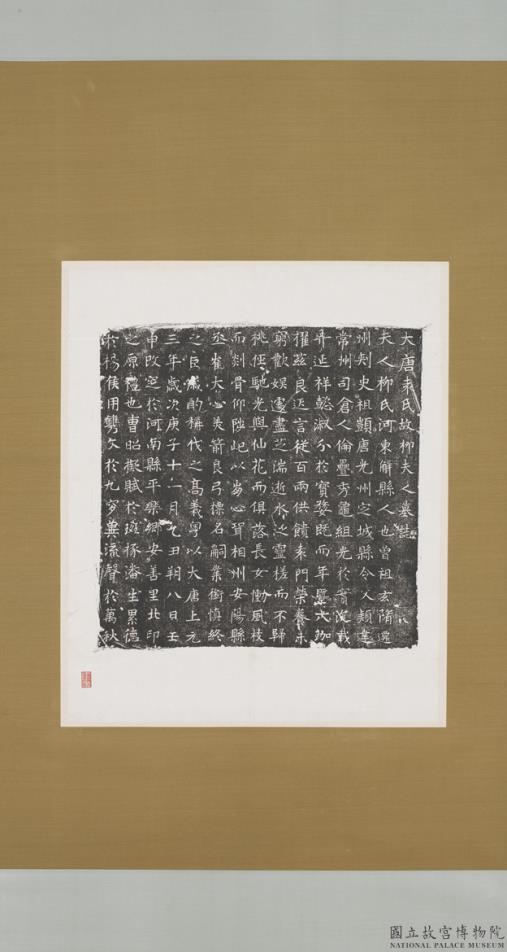 大唐袁氏故柳夫人墓誌
夫人柳氏河東解縣人也曾祖玄隋
州刾史祖顗唐光州定城縣令人
常州司倉人倫疊秀龜組光於
弄延祥懿淑分於寶婺既而年
擢茲良返言從百兩供饋素門榮養
窮歡娛遽盡芝湍逝水泛靈槎而不歸
桃徑馳光與仙花而俱落長女慟風枝
而刾骨仰陟屺以崩心壻相州安陽縣
丞崔大心美箭良弓標名嗣業銜慎終
之巨痛酌稱代之高義粵以大唐上元
三年歲次庚子十一月乙丑朔八日壬
申改窆於河南縣平樂鄉安善里北印
之原禮也曹昭擬賦於斑於潘生累德
於楊侯用鐫文於九冥兾流聲於萬秋
國立故宮博物院
NATIONAL PALACE MUSEUM